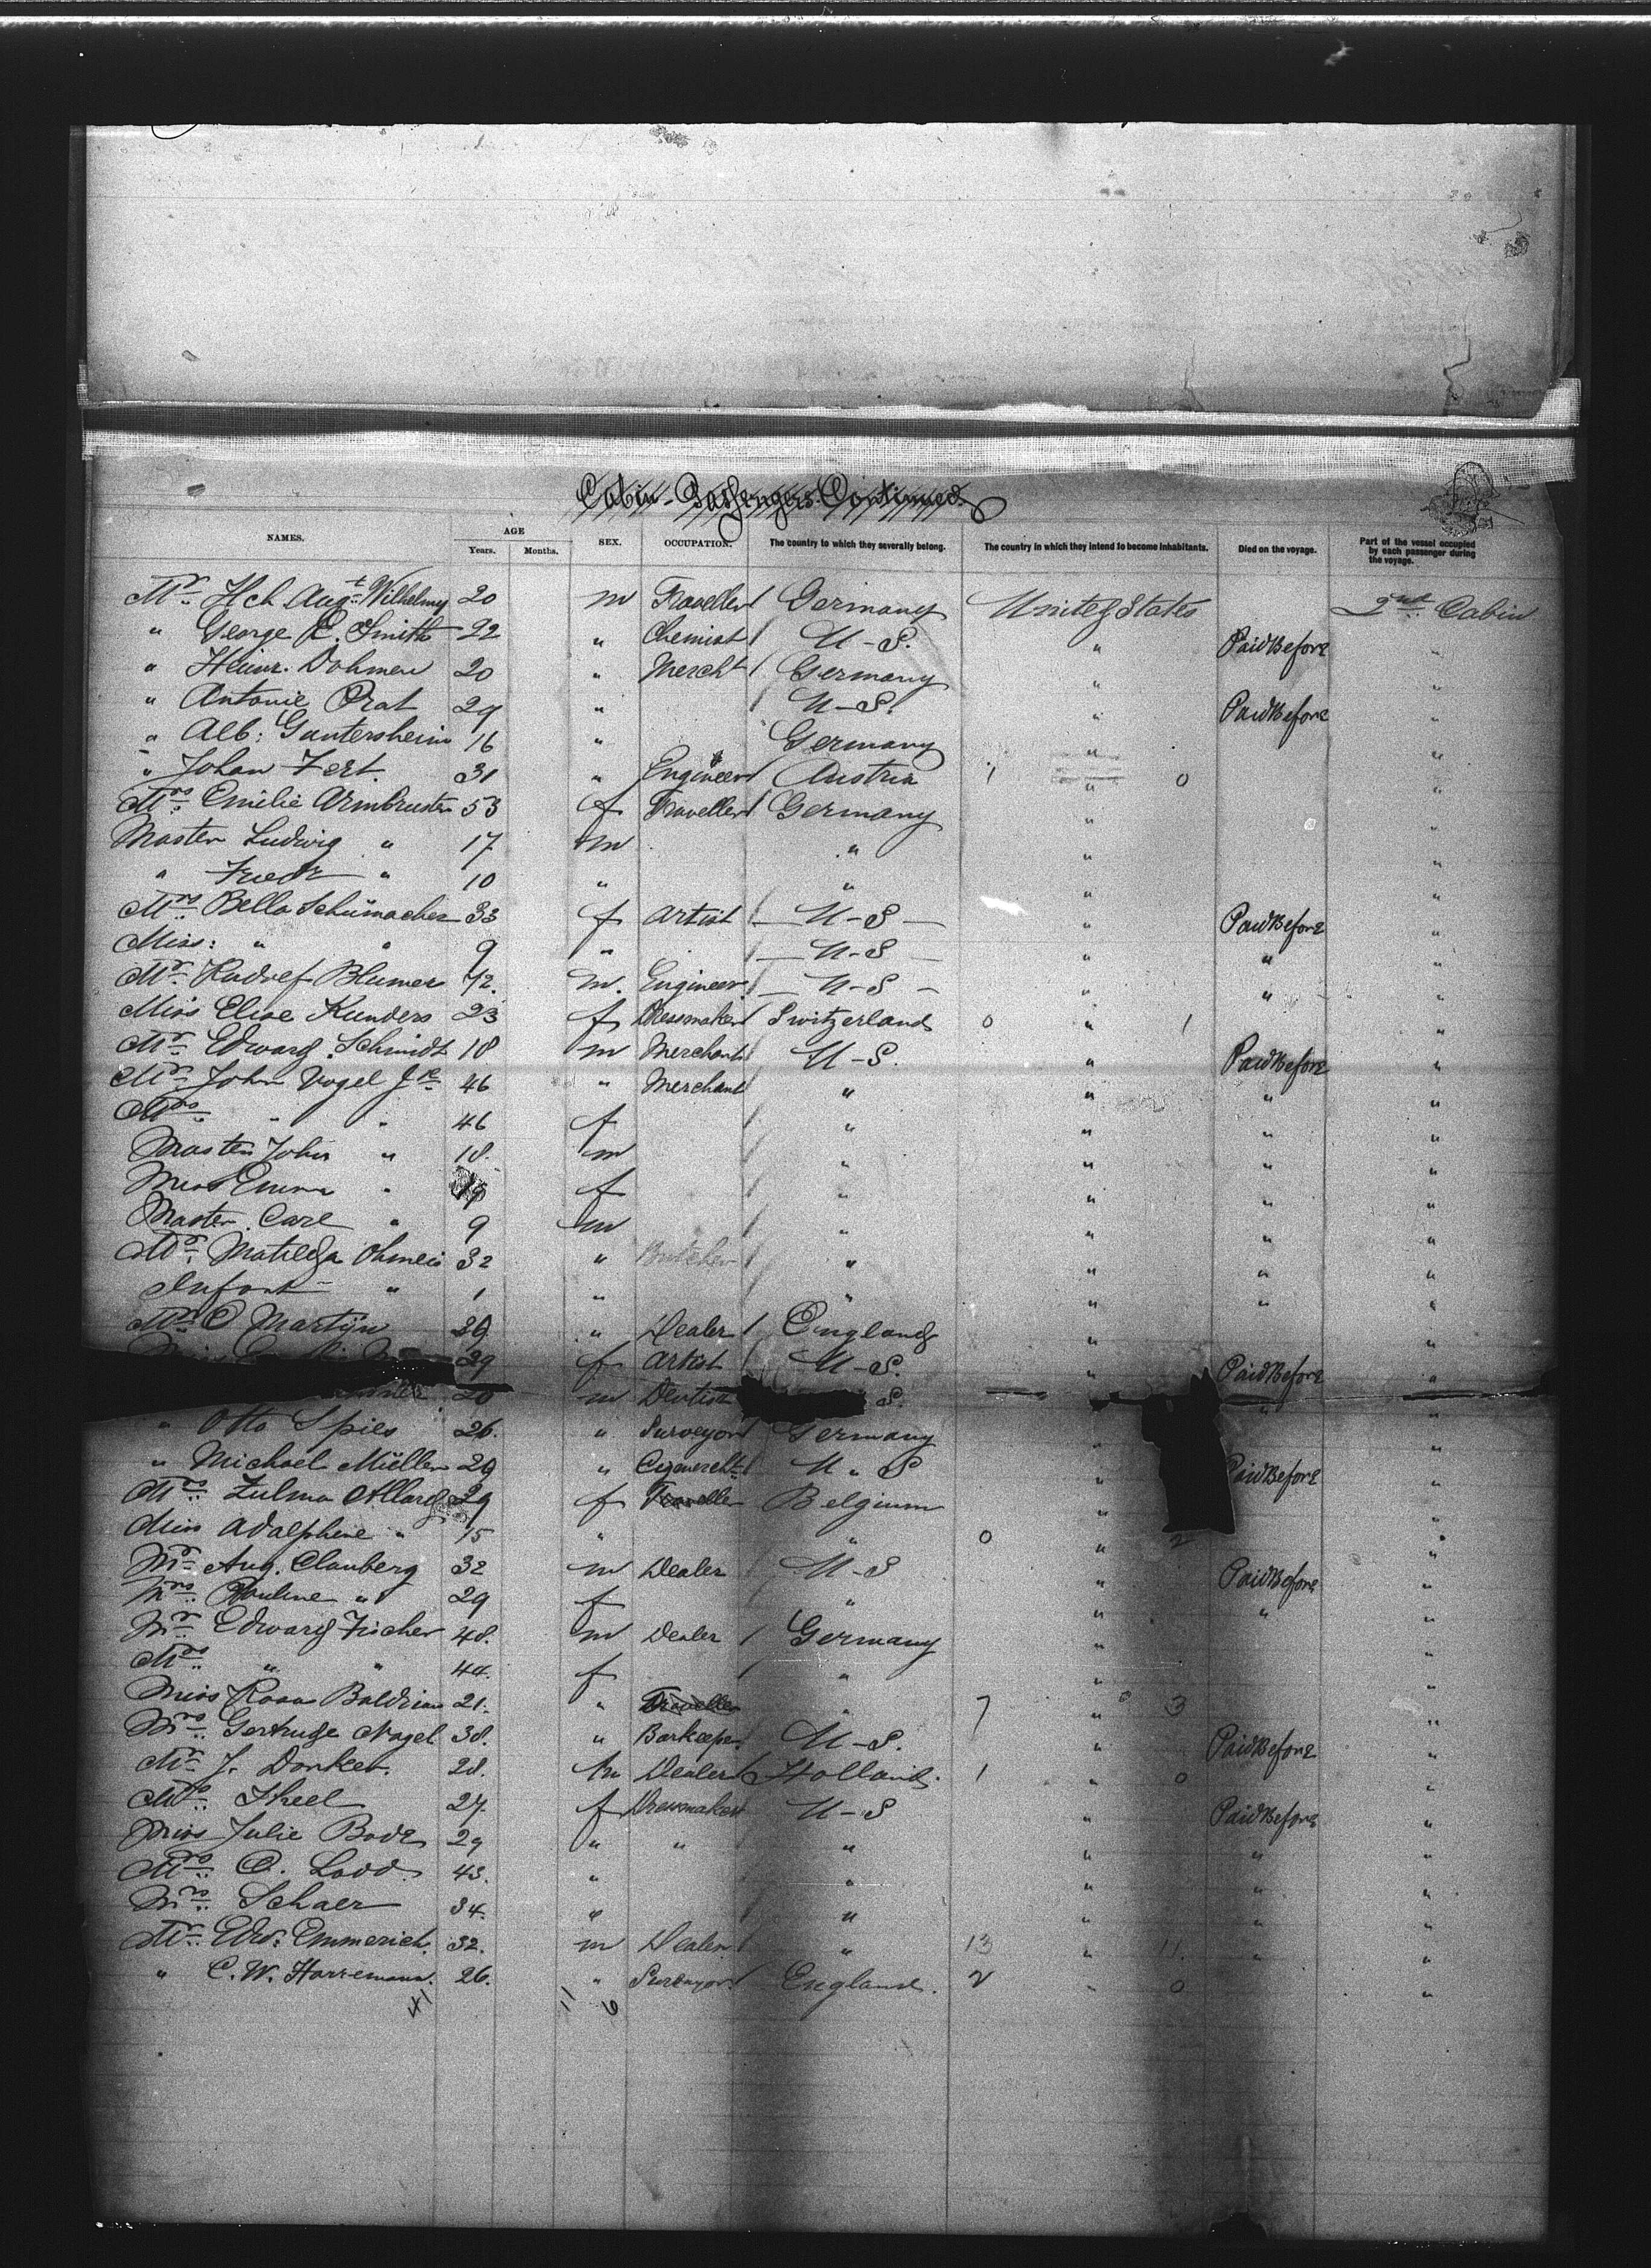 Cabin-Passengers-Continued.
NAMES. AGE Years. Months. SEX. OCCUPATION. The country to which they severally belong. The country in which they intend to become inhabitants. Died on the voyage. Part of the vessel occupied by each passenger during the voyage.
Mr. Hch Augt. Wilhelmy 20 m Traveller Germany United States 2nd Cabin
" George E. Smith 22 " Chemist U-S. " Paid Before "
" Heinr. Dohmen 20 " Mercht Germany " "
" Antonie Prat 29 " U-S. " Paid Before "
" Alb: Guntersheim 16 " Germany " "
" Johan Fert. 31 " Engineer Austria 1 " 0 "
Mrs. Emilie Armbruster 53 f Traveller Germany " "
Master Ludwig " 17 m " " "
" Friedr " 10 " " " "
Mrs. Bella Schumacher 33 f Artist U-S " Paid Before "
Miss: " " 9 " U-S " " "
Mr. Rudolf Blumer 42. m. Engineer. U-S " " "
Miss Elise Kunders 23 f Dressmaker Switzerland 0 " 1 "
Mr. Edward Schmidt 18 m Merchant U-S. " Paid Before "
Mr. John Vogel Jr. 46 " Merchant " " " "
Mrs. " " 46 f " " " "
Master John " 18. m " " " "
Miss Emma " f " " " "
Master Carl " 9 m " " " "
Mr. Matilda Ohmeis 32 " Butcher " " " "
Infant " 1 " " " " "
Mr. C Martijn 39 " Dealer England " "
29 f Artist U-S. " Paid Before "
20 m Dentist S. " " "
" Otto Spies 26. " Surveyor Germany " "
" Michael Müller 29 " U " S " Paid Before "
Mrs. Zulma Allard 29 f Traveller Belgium " "
Miss Adalphine " 15 " " 0 " 2 "
Mr. Aug. Clauberg 32 m Dealer U-S " Paid Before "
Mrs. Pauline " 29 f " " " "
Mr. Edward Fischer 48. m Dealer Germany " "
Mrs. " " 44. f " " "
Miss Rosa Baldrian 21. " Traveller " 7 " 3 "
Mrs. Gertrude Nagel 38. " Barkeeper U-S. " Paid Before "
Mr. J. Donker. 28. m Dealer Holland. 1 " 0 "
Mrs. Theel 27. f Dressmaker U-S " Paid Before "
Miss Julie Bode 29 " " " " " "
Mrs. C. Ladd. 43. " " " " "
Mrs. Schaer 34. " " " " "
Mr. Edw. Emmerich. 32. m Dealer " 13 " 11. " "
" C. W. Harremann. 26. " Surveyor. England. 2 " 0 "
41 11 6